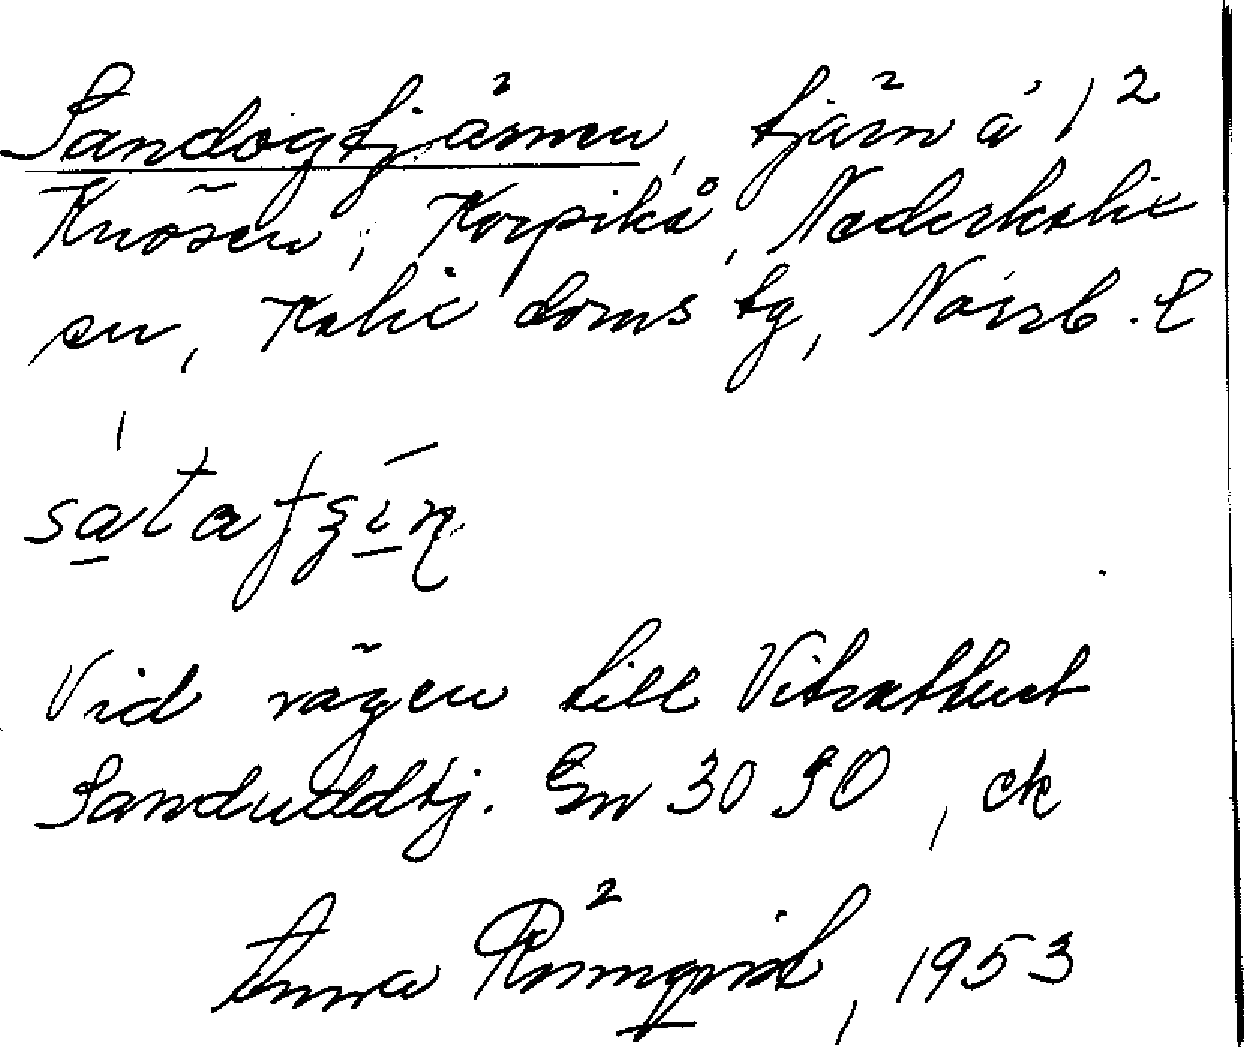 Sandögtjärnen, tjärn å 1²
Knösen, Korpikå, Nederkalix
sn, Kalix doms tg, Norrb. l
Vid vägen till Vitvattnet
Sanduddtj. En 30 SO, ek
Anna Rönnqvist, 1953